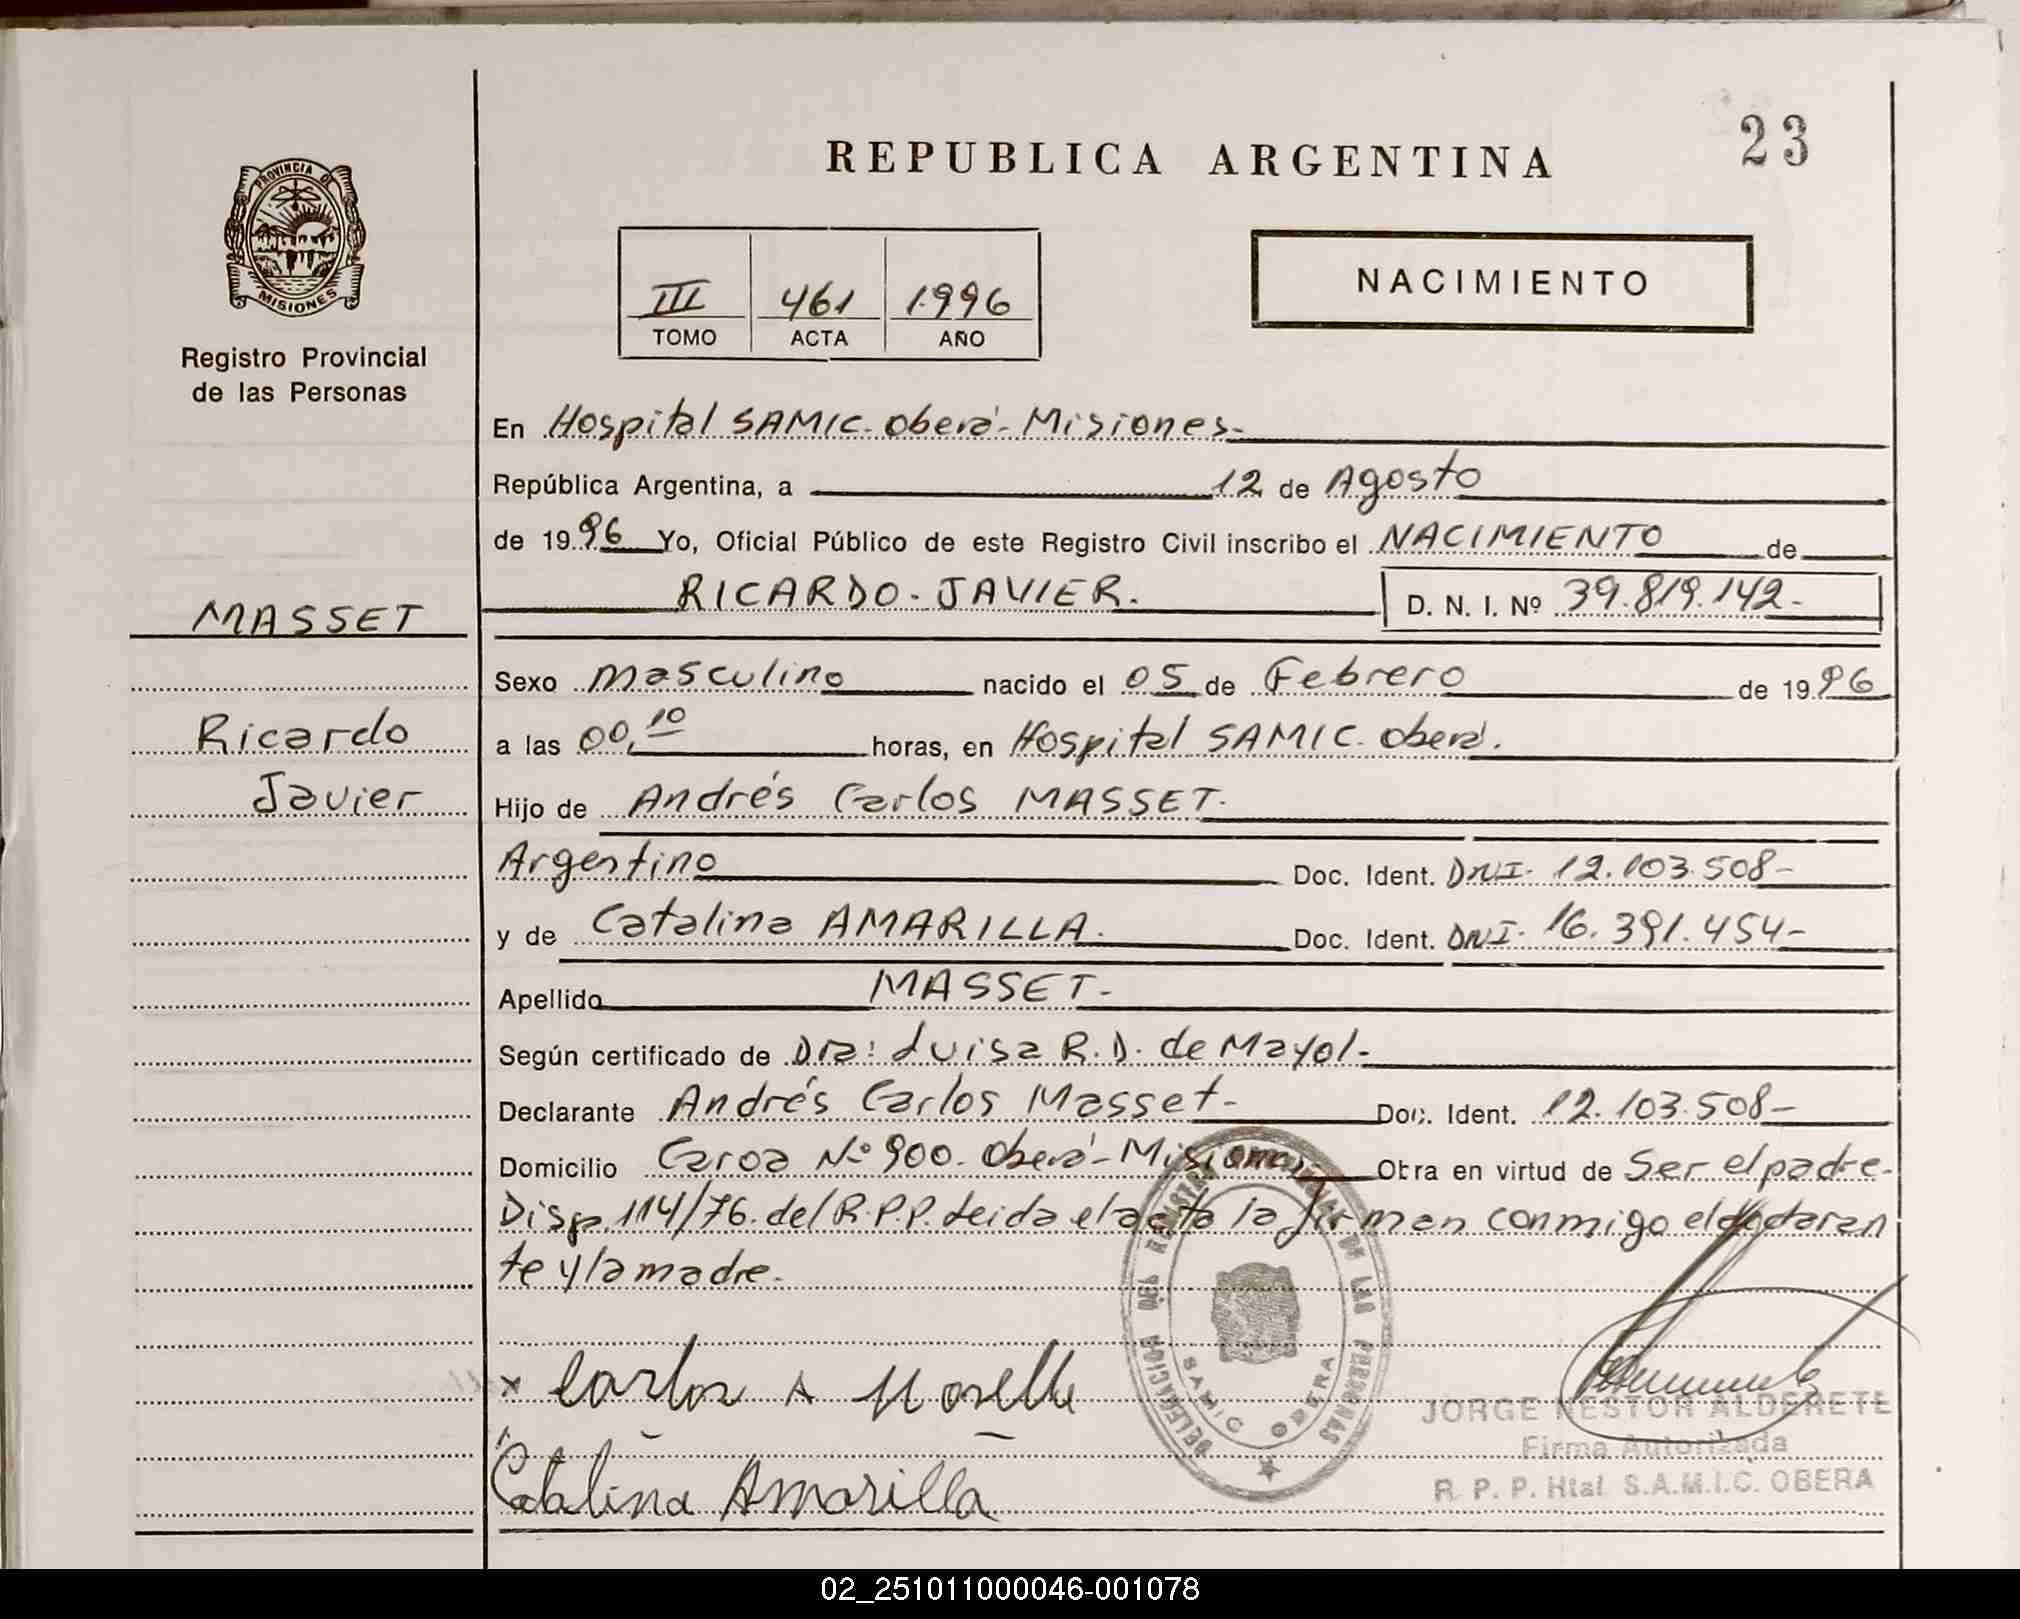 REPUBLICA ARGENTINA
23
PROVINCIA DE
MISIONES
Registro Provincial
de las Personas
III 461 1996
TOMO ACTA AÑO
NACIMIENTO
En Hospital SAMIC. Oberá- Misiones-
República Argentina, a 12 de Agosto
de 1996 Yo, Oficial Público de este Registro Civil inscribo el NACIMIENTO de
MASSET
RICARDO. JAVIER. D. N. I. Nº 39.819.142-
Sexo masculino nacido el 05 de Febrero de 1996
Ricardo
a las 00,10 horas, en Hospital SAMIC. Oberá.
Javier
Hijo de Andrés Carlos MASSET.
Argentino Doc. Ident. DNI. 12.103.508-
y de Catalina AMARILLA. Doc. Ident. DNI. 16.391.454-
Apellido MASSET-
Según certificado de Dra: Luisa R.D. de Mayol-
Declarante Andrés Carlos Masset- Doc. Ident. 12.103.508-
Domicilio Caroa Nº 900. Oberá- Misiones- Obra en virtud de Ser el padre-
Disp. 114/76. del R.P.P. Leida el acta la firman conmigo el declaran
te y la madre.
DELEGACION DEL REGISTRO DE LAS PERSONAS
SAMIC OBERA
x Carlos A
JORGE NESTOR ALDERETE
Firma Autorizada
R. P. P. Htal. S.A.M.I.C. OBERA
Catalina Amarilla
02_251011000046-001078